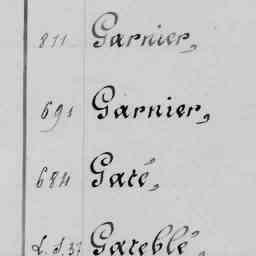 811 Garnier,
691 Garnier,
684 Gaté,
Gateblé,